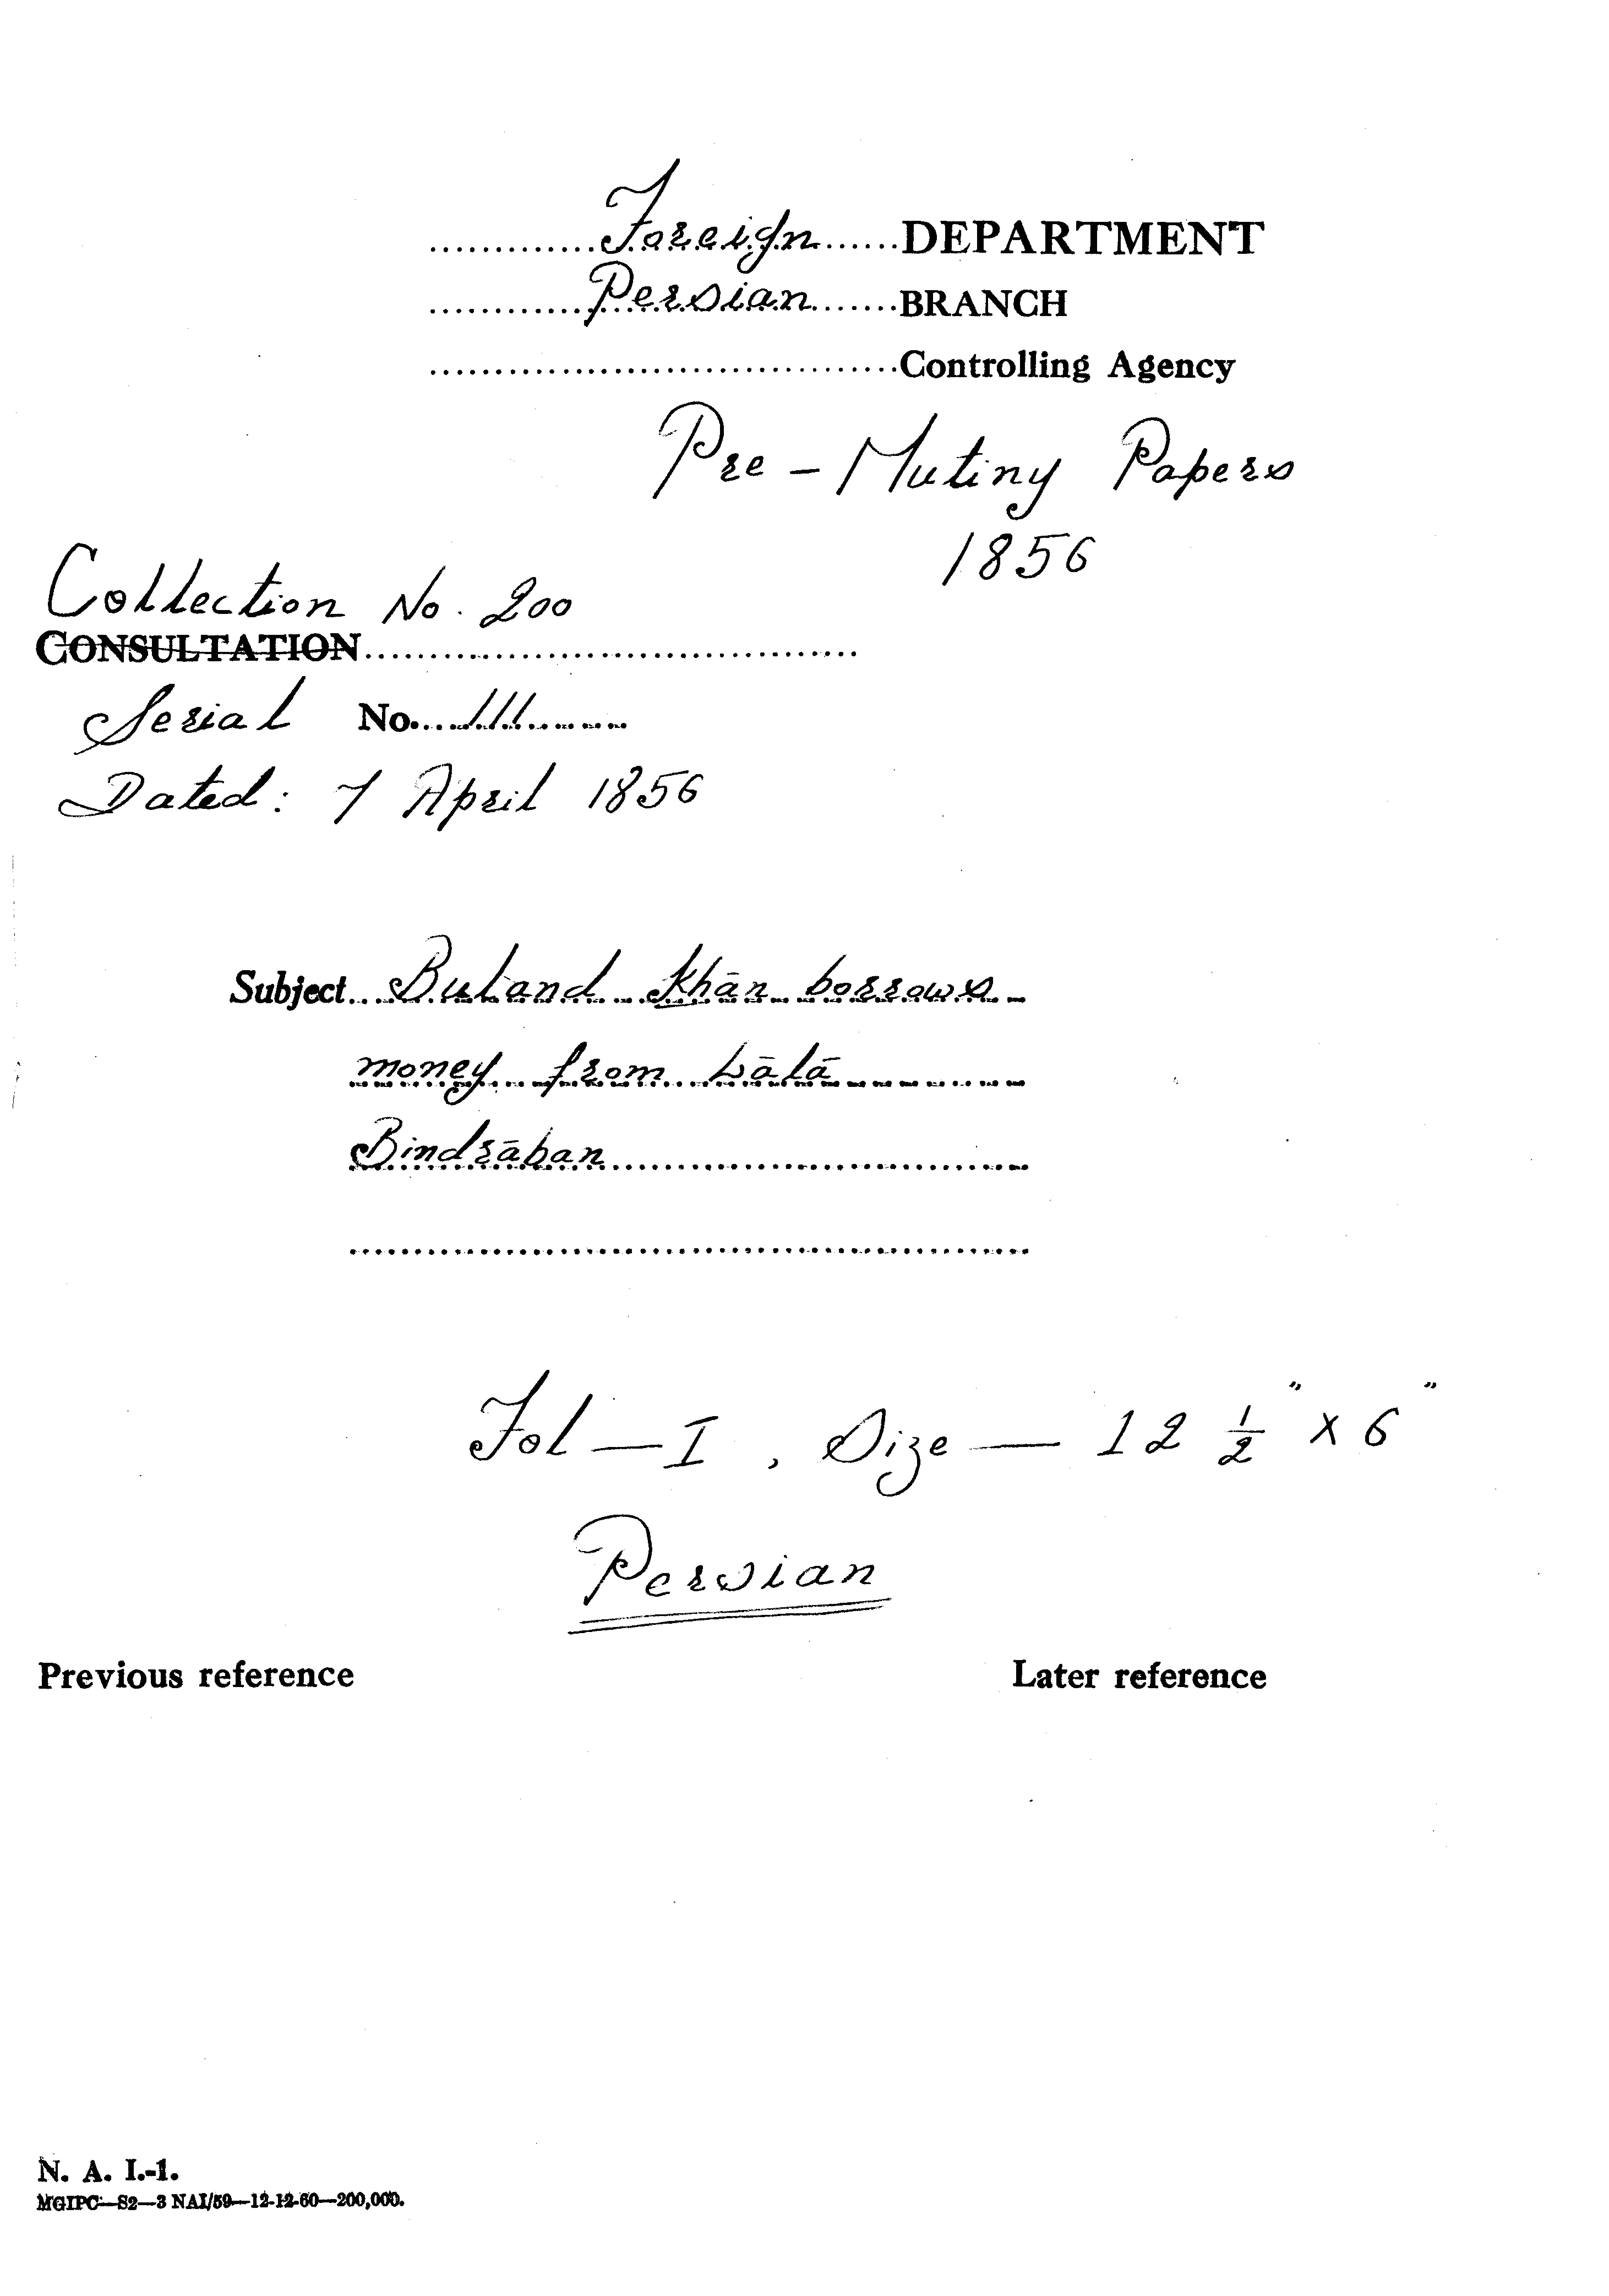 .............Foreign......DEPARTMENT
.............Persian.......BRANCH
....................................Controlling Agency
Pre - Mutiny Papers
1856
Collection No. 200
CONSULTATION......................................
Serial No....111..........
Dated: 7 April 1856
Subject...Buland Khān borrows
money from Lālā
Bindrāban
....................................................
Fol — I , Size — 12 ½" x 6"
Persian
Previous reference Later reference
N. A. I.-1.
MGIPC—S2—3 NAI/59—12-12-60—200,000.